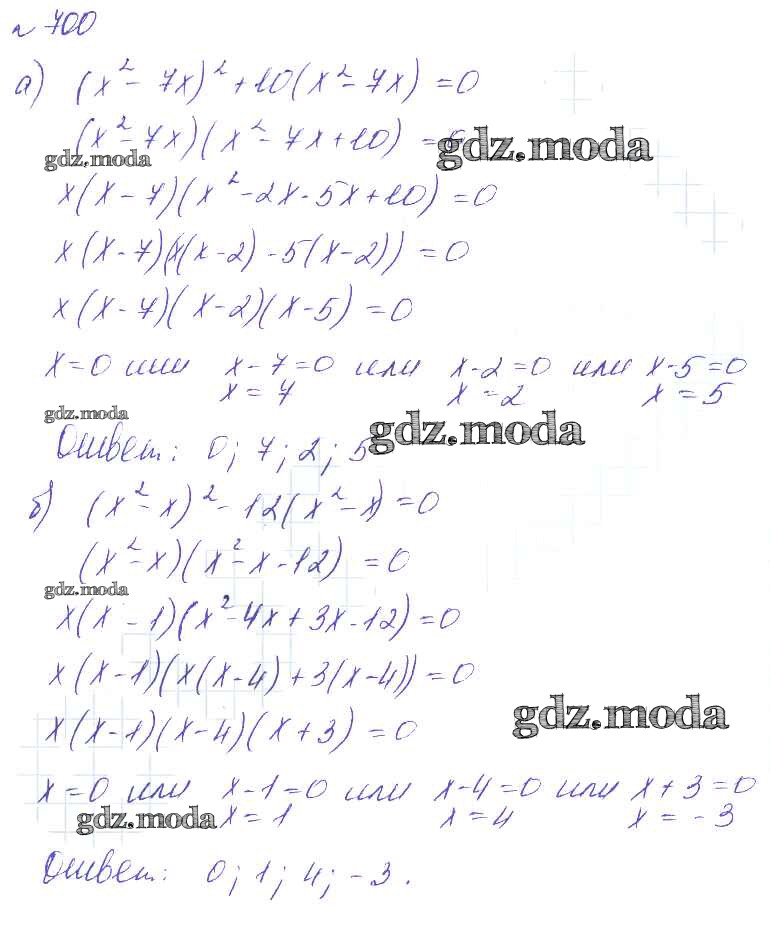 № 700
а) (x² - 7x)² + 10(x² - 7x) = 0
(x² - 7x)(x² - 7x + 10) = 0
gdz.moda gdz.moda
x(x - 7)(x² - 2x - 5x + 10) = 0
x(x - 7)(x(x - 2) - 5(x - 2)) = 0
x(x - 7)(x - 2)(x - 5) = 0
x = 0 или x - 7 = 0 или x - 2 = 0 или x - 5 = 0
x = 7 x = 2 x = 5
gdz.moda gdz.moda
Ответ: 0; 7; 2; 5
б) (x² - x)² - 12(x² - x) = 0
(x² - x)(x² - x - 12) = 0
gdz.moda
x(x - 1)(x² - 4x + 3x - 12) = 0
x(x - 1)(x(x - 4) + 3(x - 4)) = 0
x(x - 1)(x - 4)(x + 3) = 0
gdz.moda
x = 0 или x - 1 = 0 или x - 4 = 0 или x + 3 = 0
gdz.moda x = 1 x = 4 x = - 3
Ответ: 0; 1; 4; - 3.